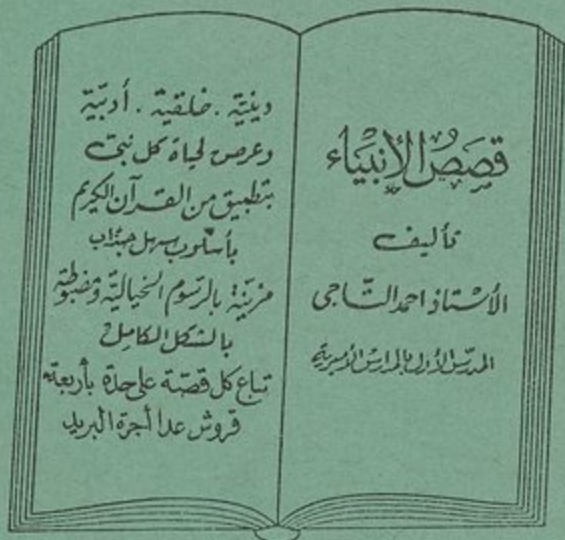 قصص الأنبياء
تأليف
الأستاذ احمد التاجى
المدرس الأول بالمدارس الأميرية
دينية . خلقية . أدبية
وعرض لحياة كل نبي
بتطبيق من القرآن الكريم
بأسلوب سهل جذاب
مزينة بالرسوم الخيالية ومضبوطة
بالشكل الكامل
تباع كل قصة على حدة بأربعة
قروش عدا أجرة البريد